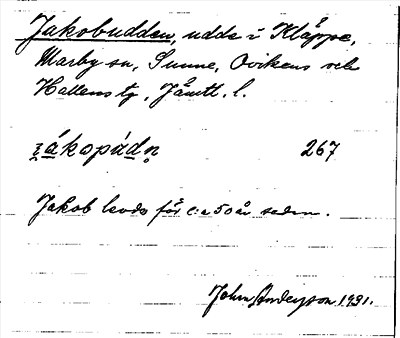 Jakobudden, udde i Kläppe,
Marby sn, Sunne, Ovikens och
Hallens tg, Jämtl. l.
267
Jakob levde för c:a 50 år sedan.
John Andersson 1931.